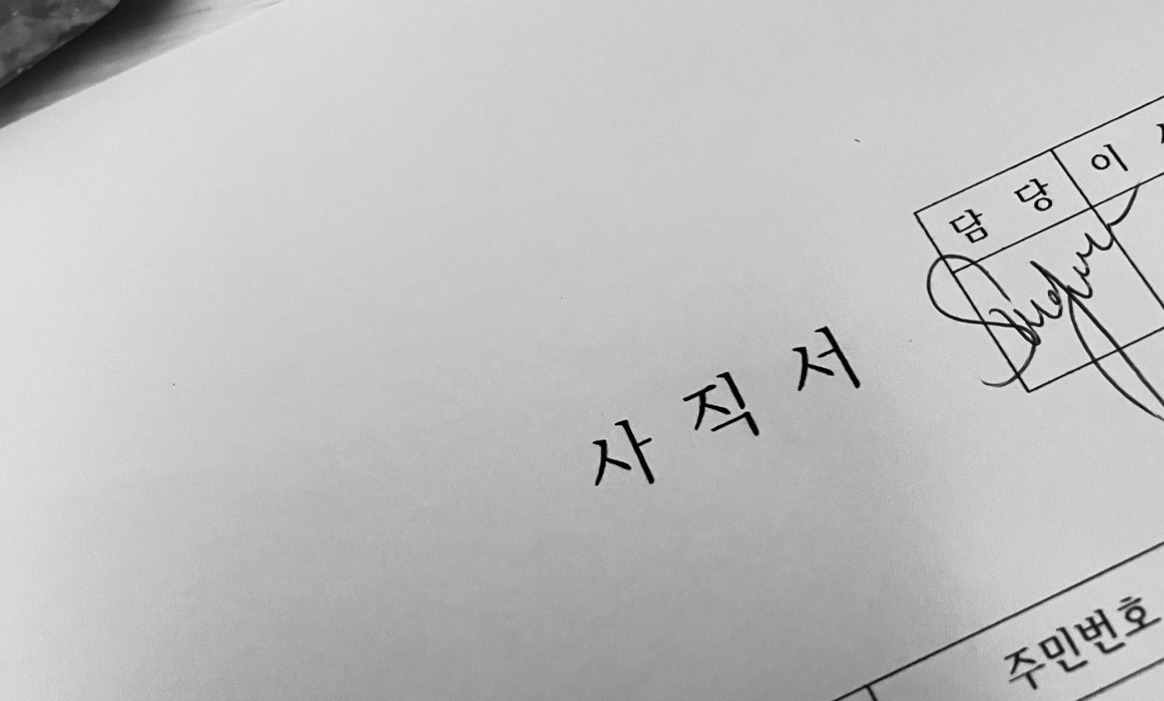 담 당 이
사 직 서
주민번호